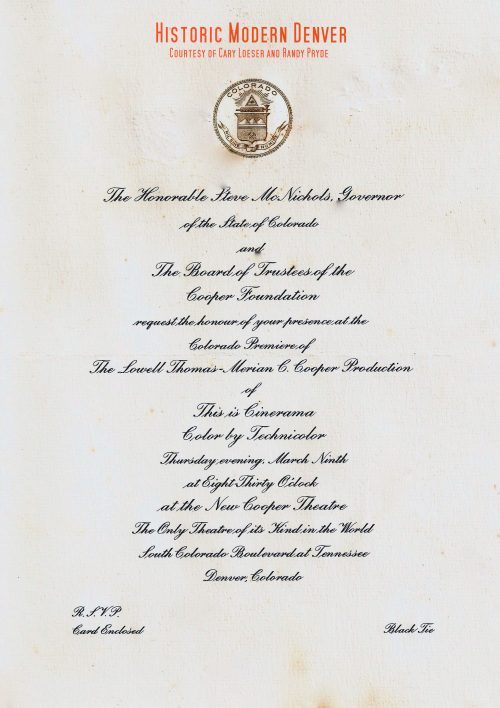 Historic Modern Denver
Courtesy of Cary Loeser and Randy Pryde
COLORADO
The Honorable Steve McNichols, Governor
of the State of Colorado
and
The Board of Trustees of the
Cooper Foundation
request the honour of your presence at the
Colorado Premiere of
The Lowell Thomas-Merian C. Cooper Production
of
This is Cinerama
Color by Technicolor
Thursday evening, March Ninth
at Eight Thirty O'clock
at the New Cooper Theatre
The Only Theatre of its Kind in the World
South Colorado Boulevard at Tennessee
Denver, Colorado
R.S.V.P.
Card Enclosed
Black Tie